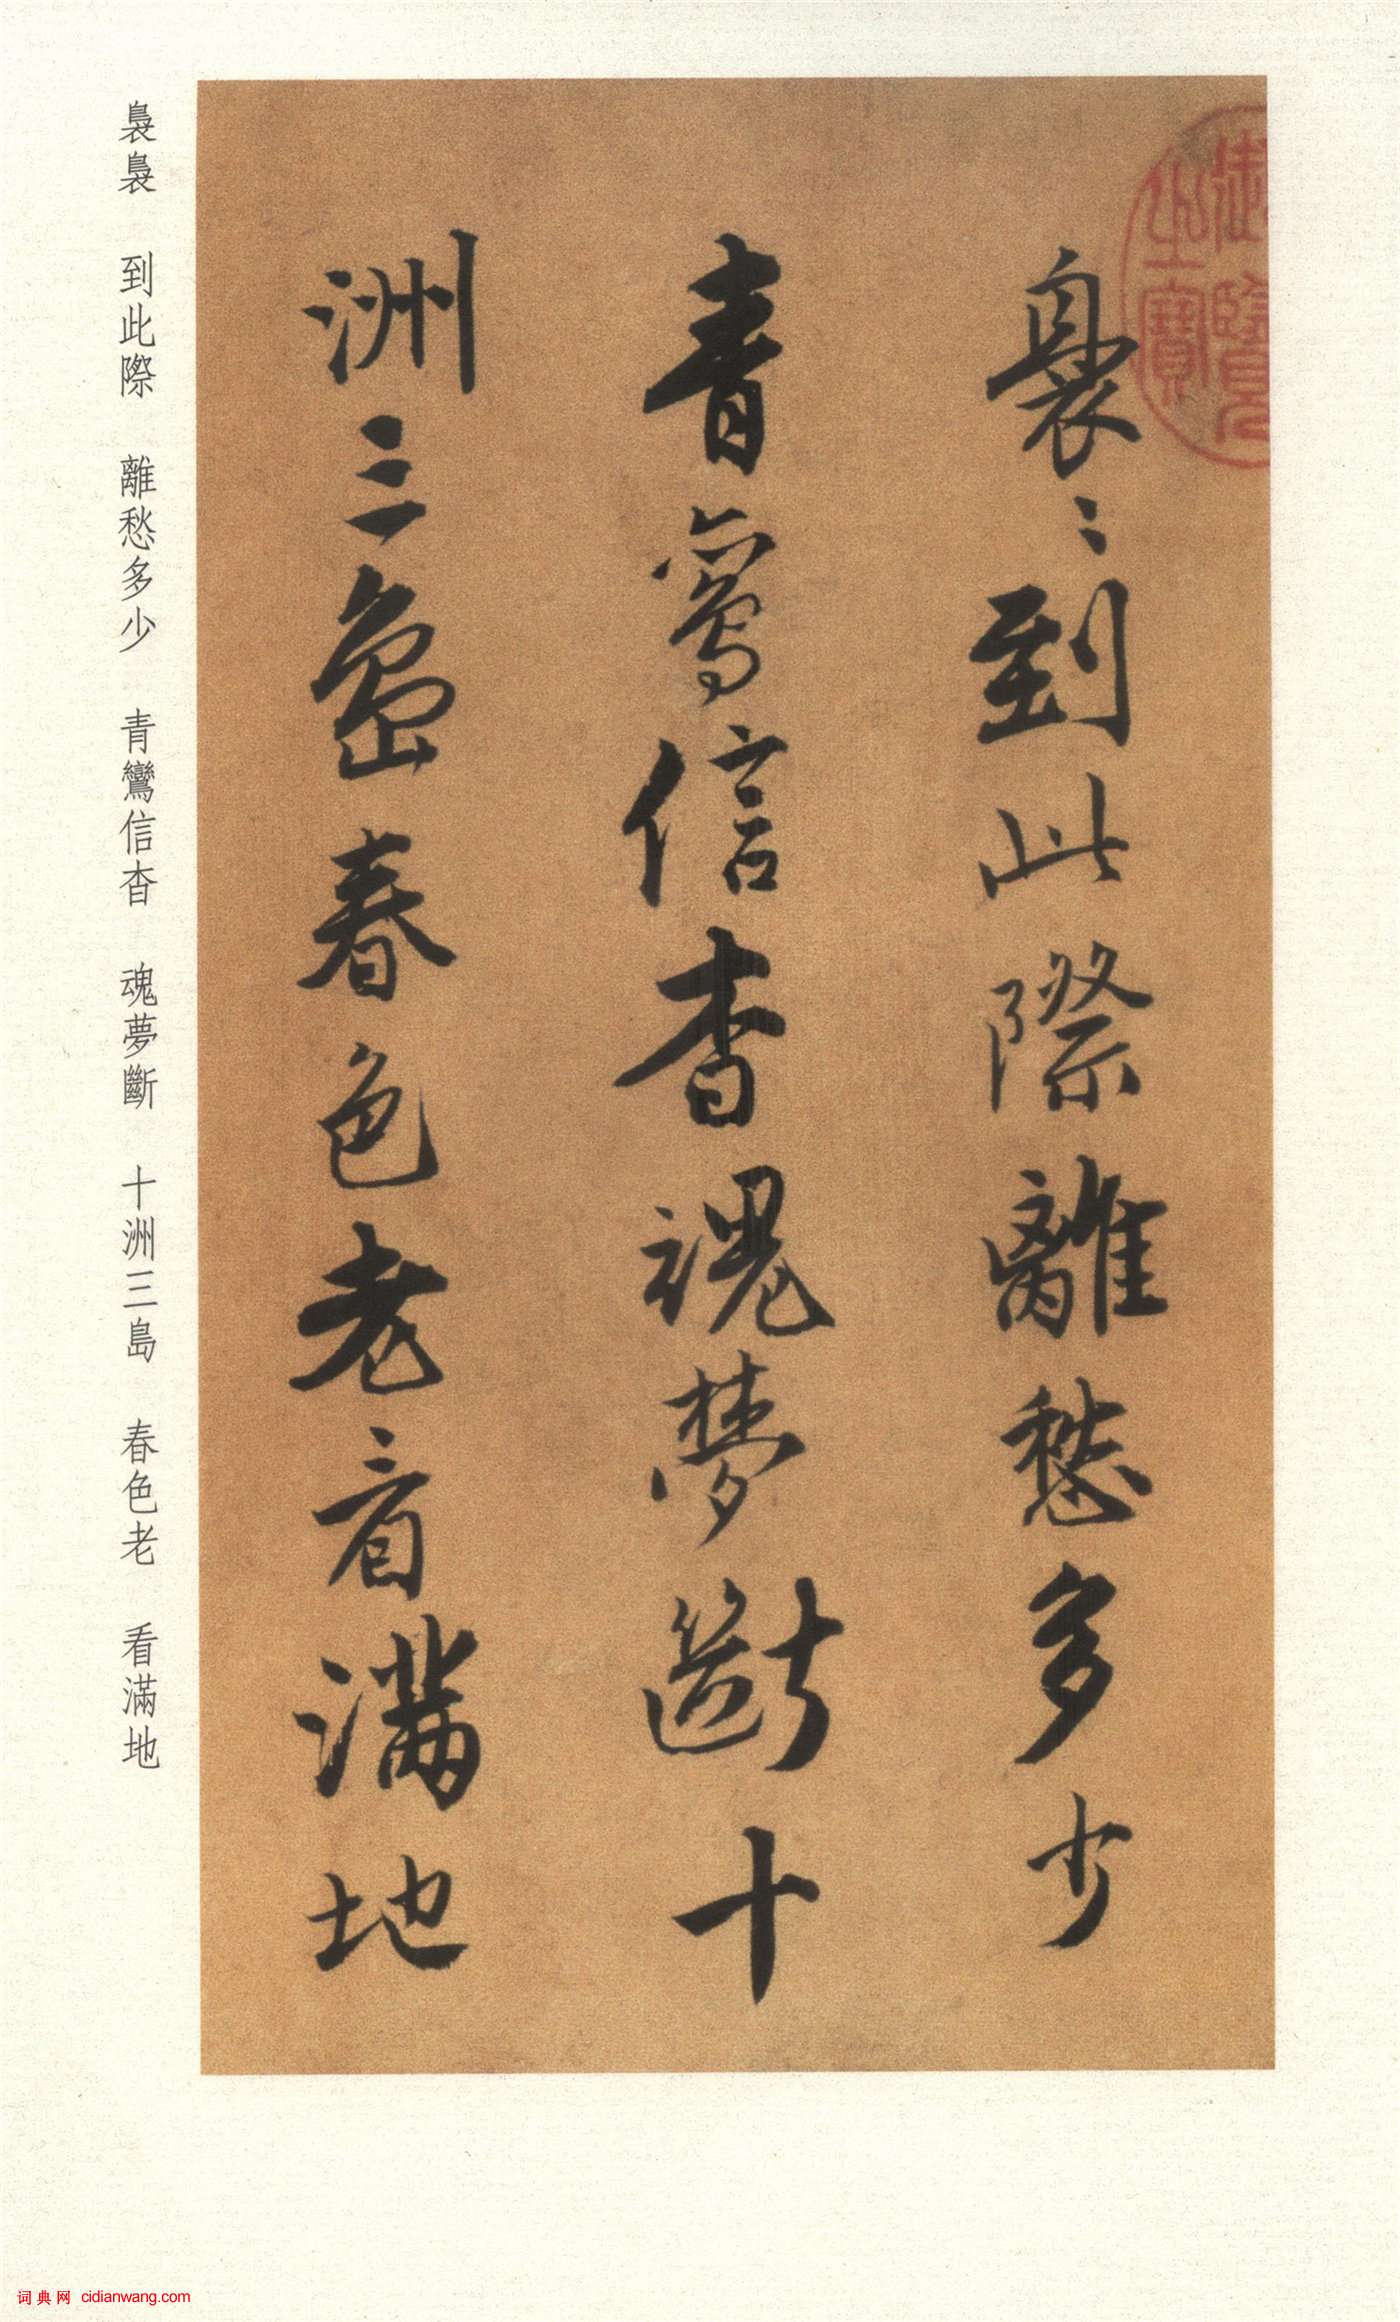 裊〻到此際離愁多少
青鸞信杳魂夢斷十
洲三島春色老看滿地
裊裊 到此際 離愁多少 青鸞信杳 魂夢斷 十洲三島 春色老 看滿地
御覽之寶
词典网 cidianwang.com